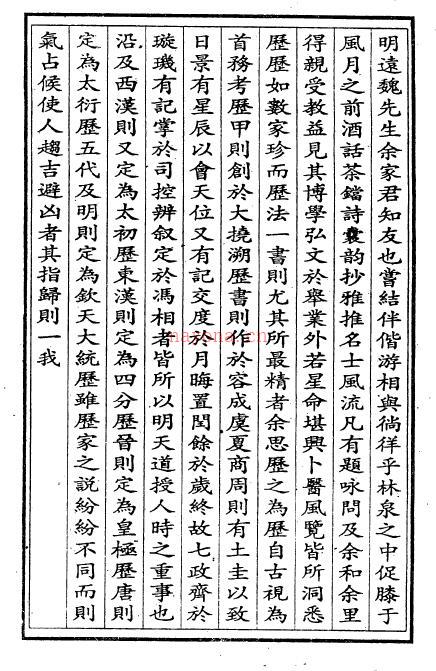 明遠魏先生余家君知友也嘗結伴偕游相與徜徉乎林泉之中促膝于
風月之前酒話茶鐺詩囊韵抄雅推名士風流凡有題咏問及余和余里
得親受教益見其博學弘文於舉業外若星命堪輿卜醫風覽皆所洞悉
歷歷如數家珍而歷法一書則尤其所最精者余思歷之為歷自古視為
首務考歷甲則創於大撓溯歷書則作於容成虞夏商周則有土圭以致
日景有星辰以會天位又有記交度於月晦置閏餘於歲終故七政齊於
璇璣有記掌於司控辨叙定於馮相者皆所以明天道授人時之重事也
沿及西漢則又定為太初歷東漢則定為四分歷晉則定為皇極歷唐則
定為太衍歷五代及明則定為欽天大統歷雖歷家之説紛紛不同而則
氣占候使人趨吉避凶者其指歸則一我